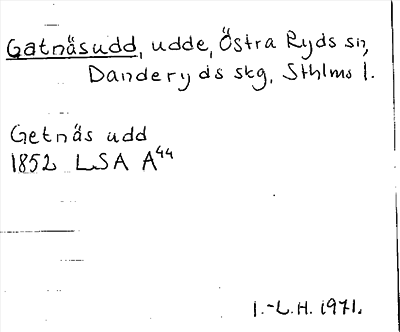 Gatnäsudd, udde, Östra Ryds sn,
Danderyds skg, Sthlms l.
Getnäs udd
1852 LSA A44
I.-L.H. 1971.